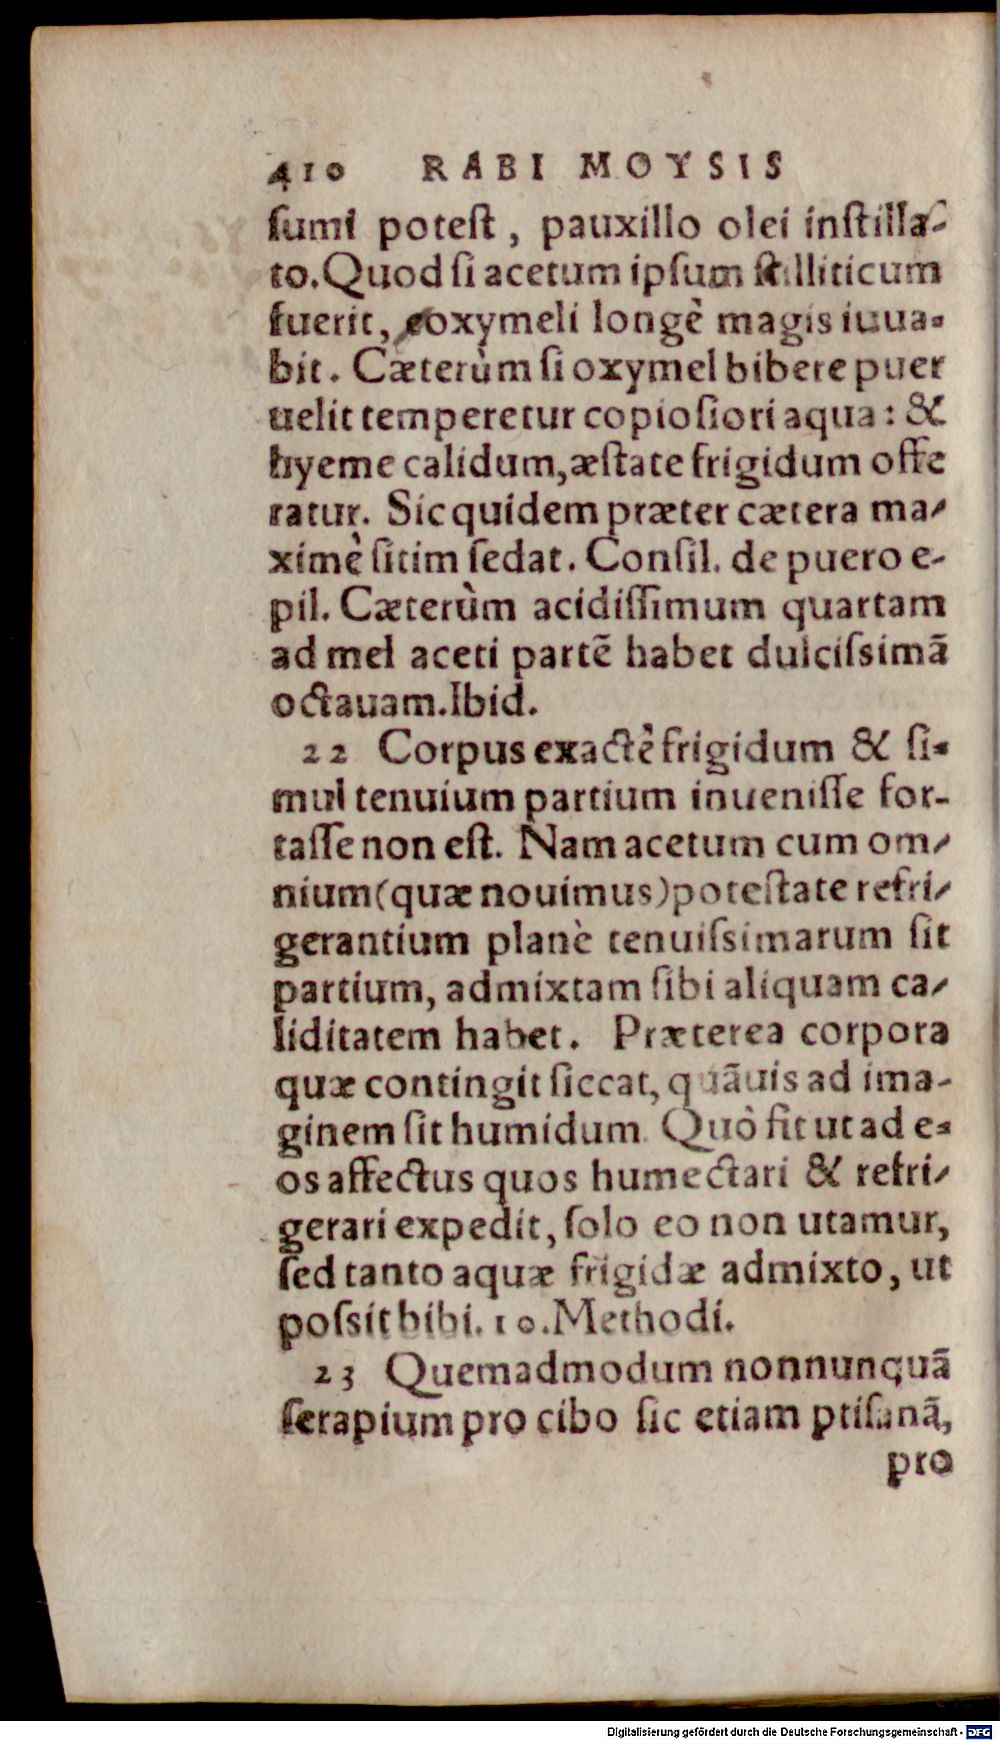 410 RABI MOYSIS
ſumi poteſt, pauxillo olei inſtilla-
to. Quod ſi acetum ipſum ſcilliticum
fuerit, eo oxymeli longè magis iuua-
bit. Cæterùm ſi oxymel bibere puer
uelit temperetur copioſiori aqua: &
hyeme calidum, æſtate frigidum offe
ratur. Sic quidem præter cætera ma-
ximè ſitim ſedat. Conſil. de puero e-
pil. Cæterùm acidiſſimum quartam
ad mel aceti partē habet dulciſsimā
octauam. Ibid.
22 Corpus exactè frigidum & ſi-
mul tenuium partium inueniſſe for-
taſſe non eſt. Nam acetum cum om-
nium (quæ nouimus) poteſtate refri-
gerantium planè tenuiſsimarum ſit
partium, admixtam ſibi aliquam ca-
liditatem habet. Præterea corpora
quæ contingit ſiccat, quāuis ad ima-
ginem ſit humidum. Quò fit ut ad e-
os affectus quos humectari & refri-
gerari expedit, ſolo eo non utamur,
ſed tanto aquæ frigidæ admixto, ut
poſsit bibi. 10. Methodi.
23 Quemadmodum nonnunquā
ſerapium pro cibo ſic etiam ptiſanā,
pro
Digitalisierung gefördert durch die Deutsche Forschungsgemeinschaft - DFG